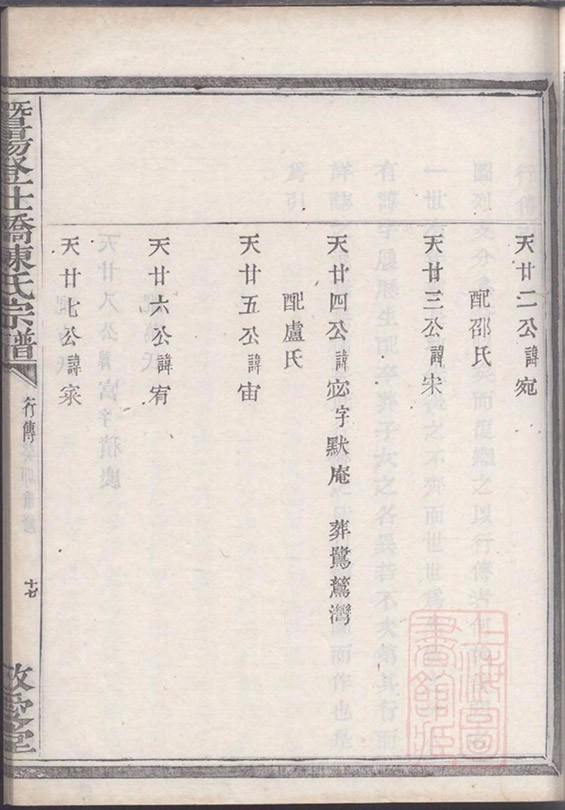 天廿二公諱宛
配邵氏
天廿三公諱宋
天廿四公諱宓字默庵 葬鷺鷥灣
配盧氏
天廿五公諱宙
天廿六公諱宥
天廿七公諱家
暨陽登仕橋陳氏宗譜
行傳
十七
敬愛堂